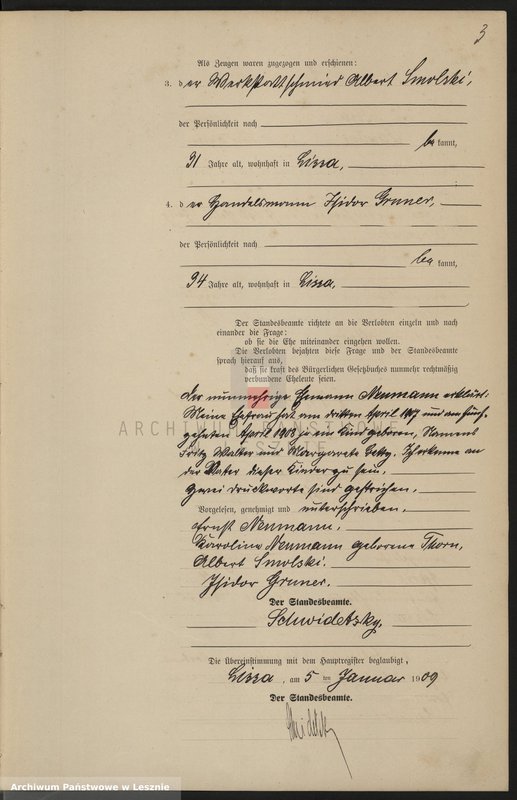 3
Als Zeugen waren zugezogen und erschienen:
3. der Werkstattschmied Albert Smolski,
der Persönlichkeit nach
bekannt,
31 Jahre alt, wohnhaft in Lissa,
4. der Handelsmann Isidor Gruner,
der Persönlichkeit nach
bekannt,
34 Jahre alt, wohnhaft in Lissa,
Der Standesbeamte richtete an die Verlobten einzeln und nach
einander die Frage:
ob sie die Ehe miteinander eingehen wollen.
Die Verlobten bejahten diese Frage und der Standesbeamte
sprach hierauf aus,
daß sie kraft des Bürgerlichen Gesetzbuches nunmehr rechtmäßig
verbundene Eheleute seien.
Der nunmehrige Ehemann Neumann erklärt:
Meine Ehefrau hat am dritten April 1907 und am fünf-
zehnten April 1908 je ein Kind geboren, Namens
Fritz Walter und Margarete Betty. Ich erkenne an
der Vater dieser Kinder zu sein.
Zwei Druckworte sind gestrichen.
Vorgelesen, genehmigt und unterschrieben.
Ernst Neumann.
Karoline Neumann geborene Thorn,
Albert Smolski.
Isidor Gruner.
Der Standesbeamte.
Schwidetzky.
Die Übereinstimmung mit dem Hauptregister beglaubigt,
Lissa, am 5 ten Januar 1909
Der Standesbeamte.
Schwidetzky
ARCHIWUM PAŃSTWOWE
W LESZNIE
Archiwum Państwowe w Lesznie